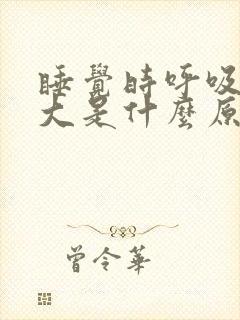 睡覺時呼吸
大是什麼原
曾令華